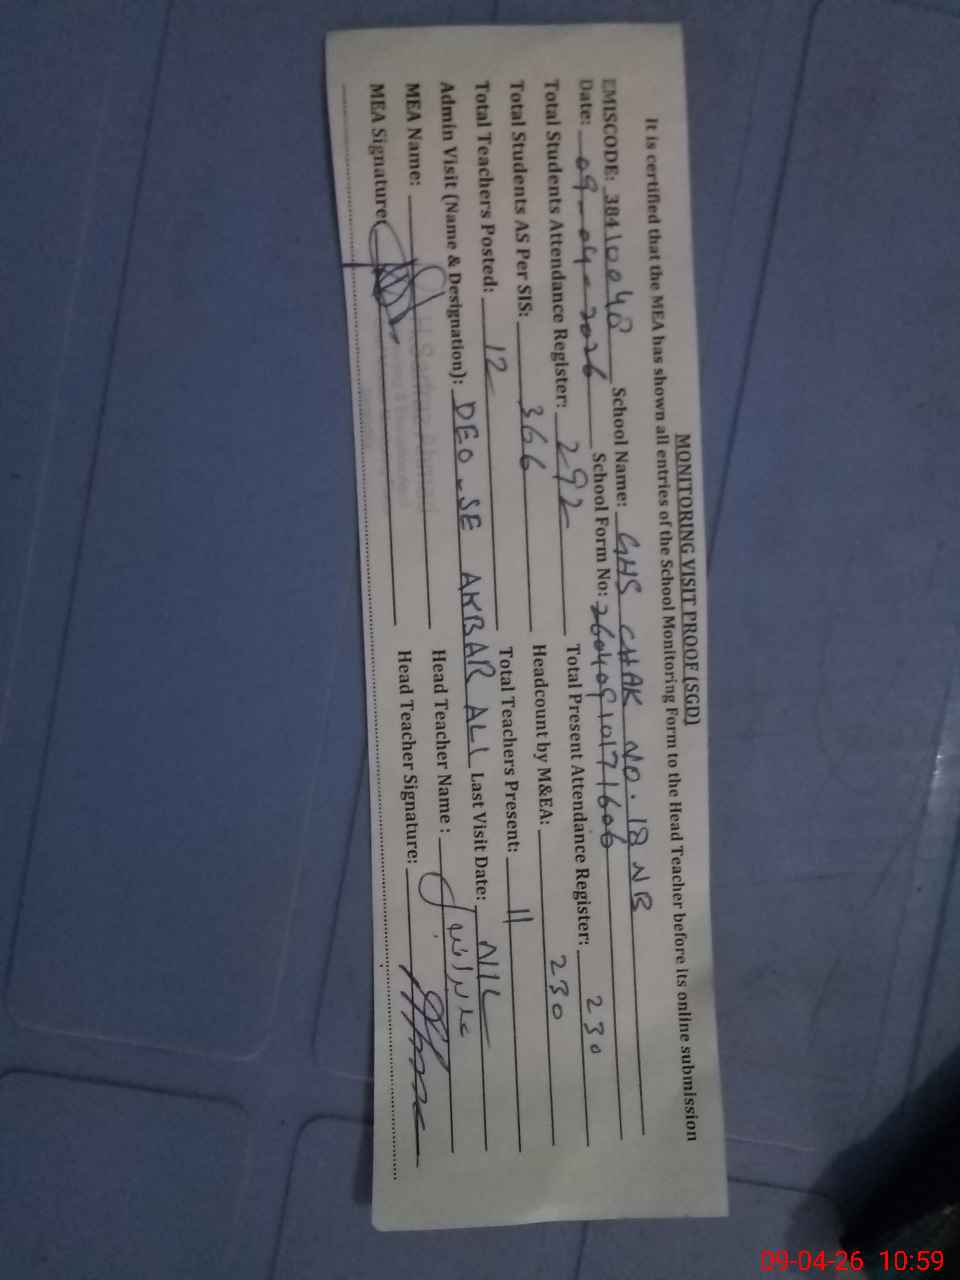 MONITORING VISIT PROOF (SGD)
It is certified that the MEA has shown all entries of the School Monitoring Form to the Head Teacher before its online submission
EMISCODE: 38410048 School Name: GHS CHAK NO. 18 NB
Date: 09-04-2026 School Form No: 26040910171606
Total Students Attendance Register: 292 Total Present Attendance Register: 230
Total Students AS Per SIS: 366 Headcount by M&EA: 230
Total Teachers Posted: 12 Total Teachers Present: 11
Admin Visit (Name & Designation): DEO-SE AKBAR ALI Last Visit Date: NIL
MEA Name: Head Teacher Name :
MEA Signature: Head Teacher Signature:
09-04-26 10:59